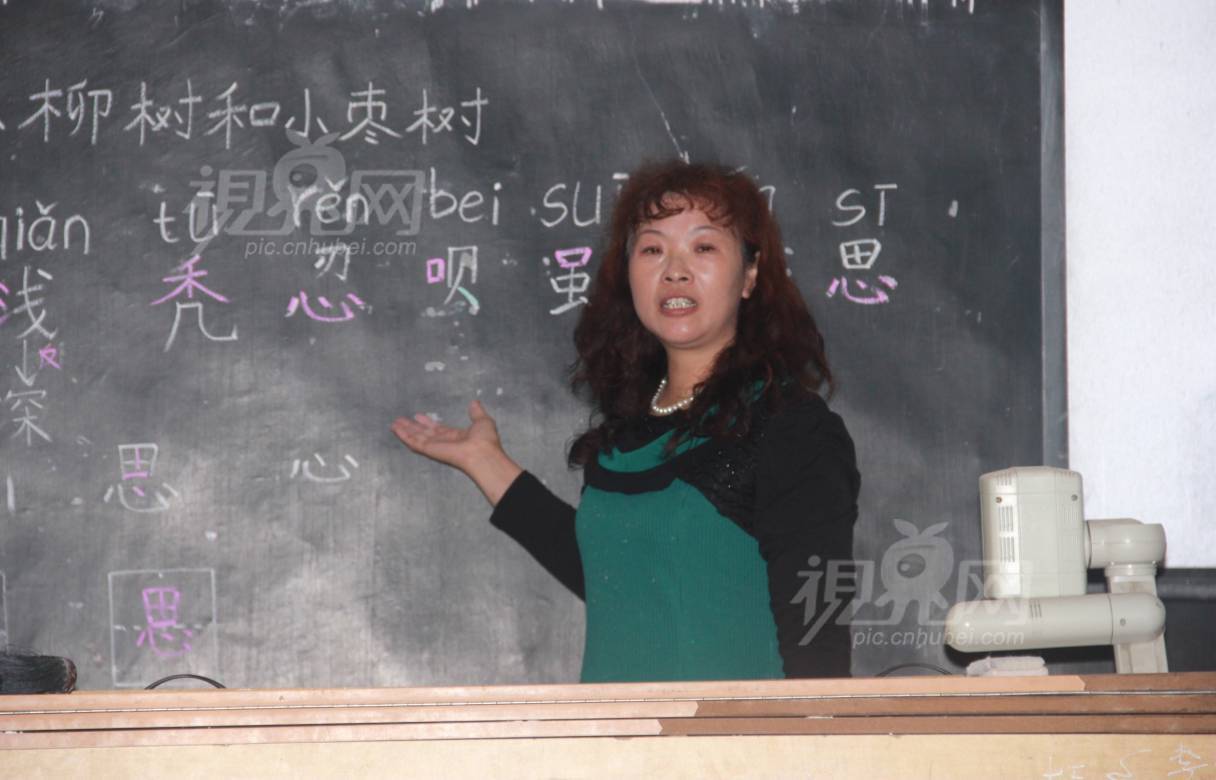 柳树和小枣树
qiǎn tū rěn bei suī sī
浅 秃 忍 呗 虽 思
深
思 心
思
視界网
pic.cnhubei.com
視界网
pic.cnhubei.com